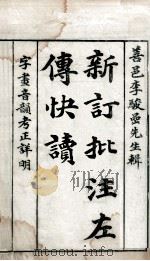 善邑李駿嵒先生輯
新訂批注左
傳快讀
字畫音韻考正詳明